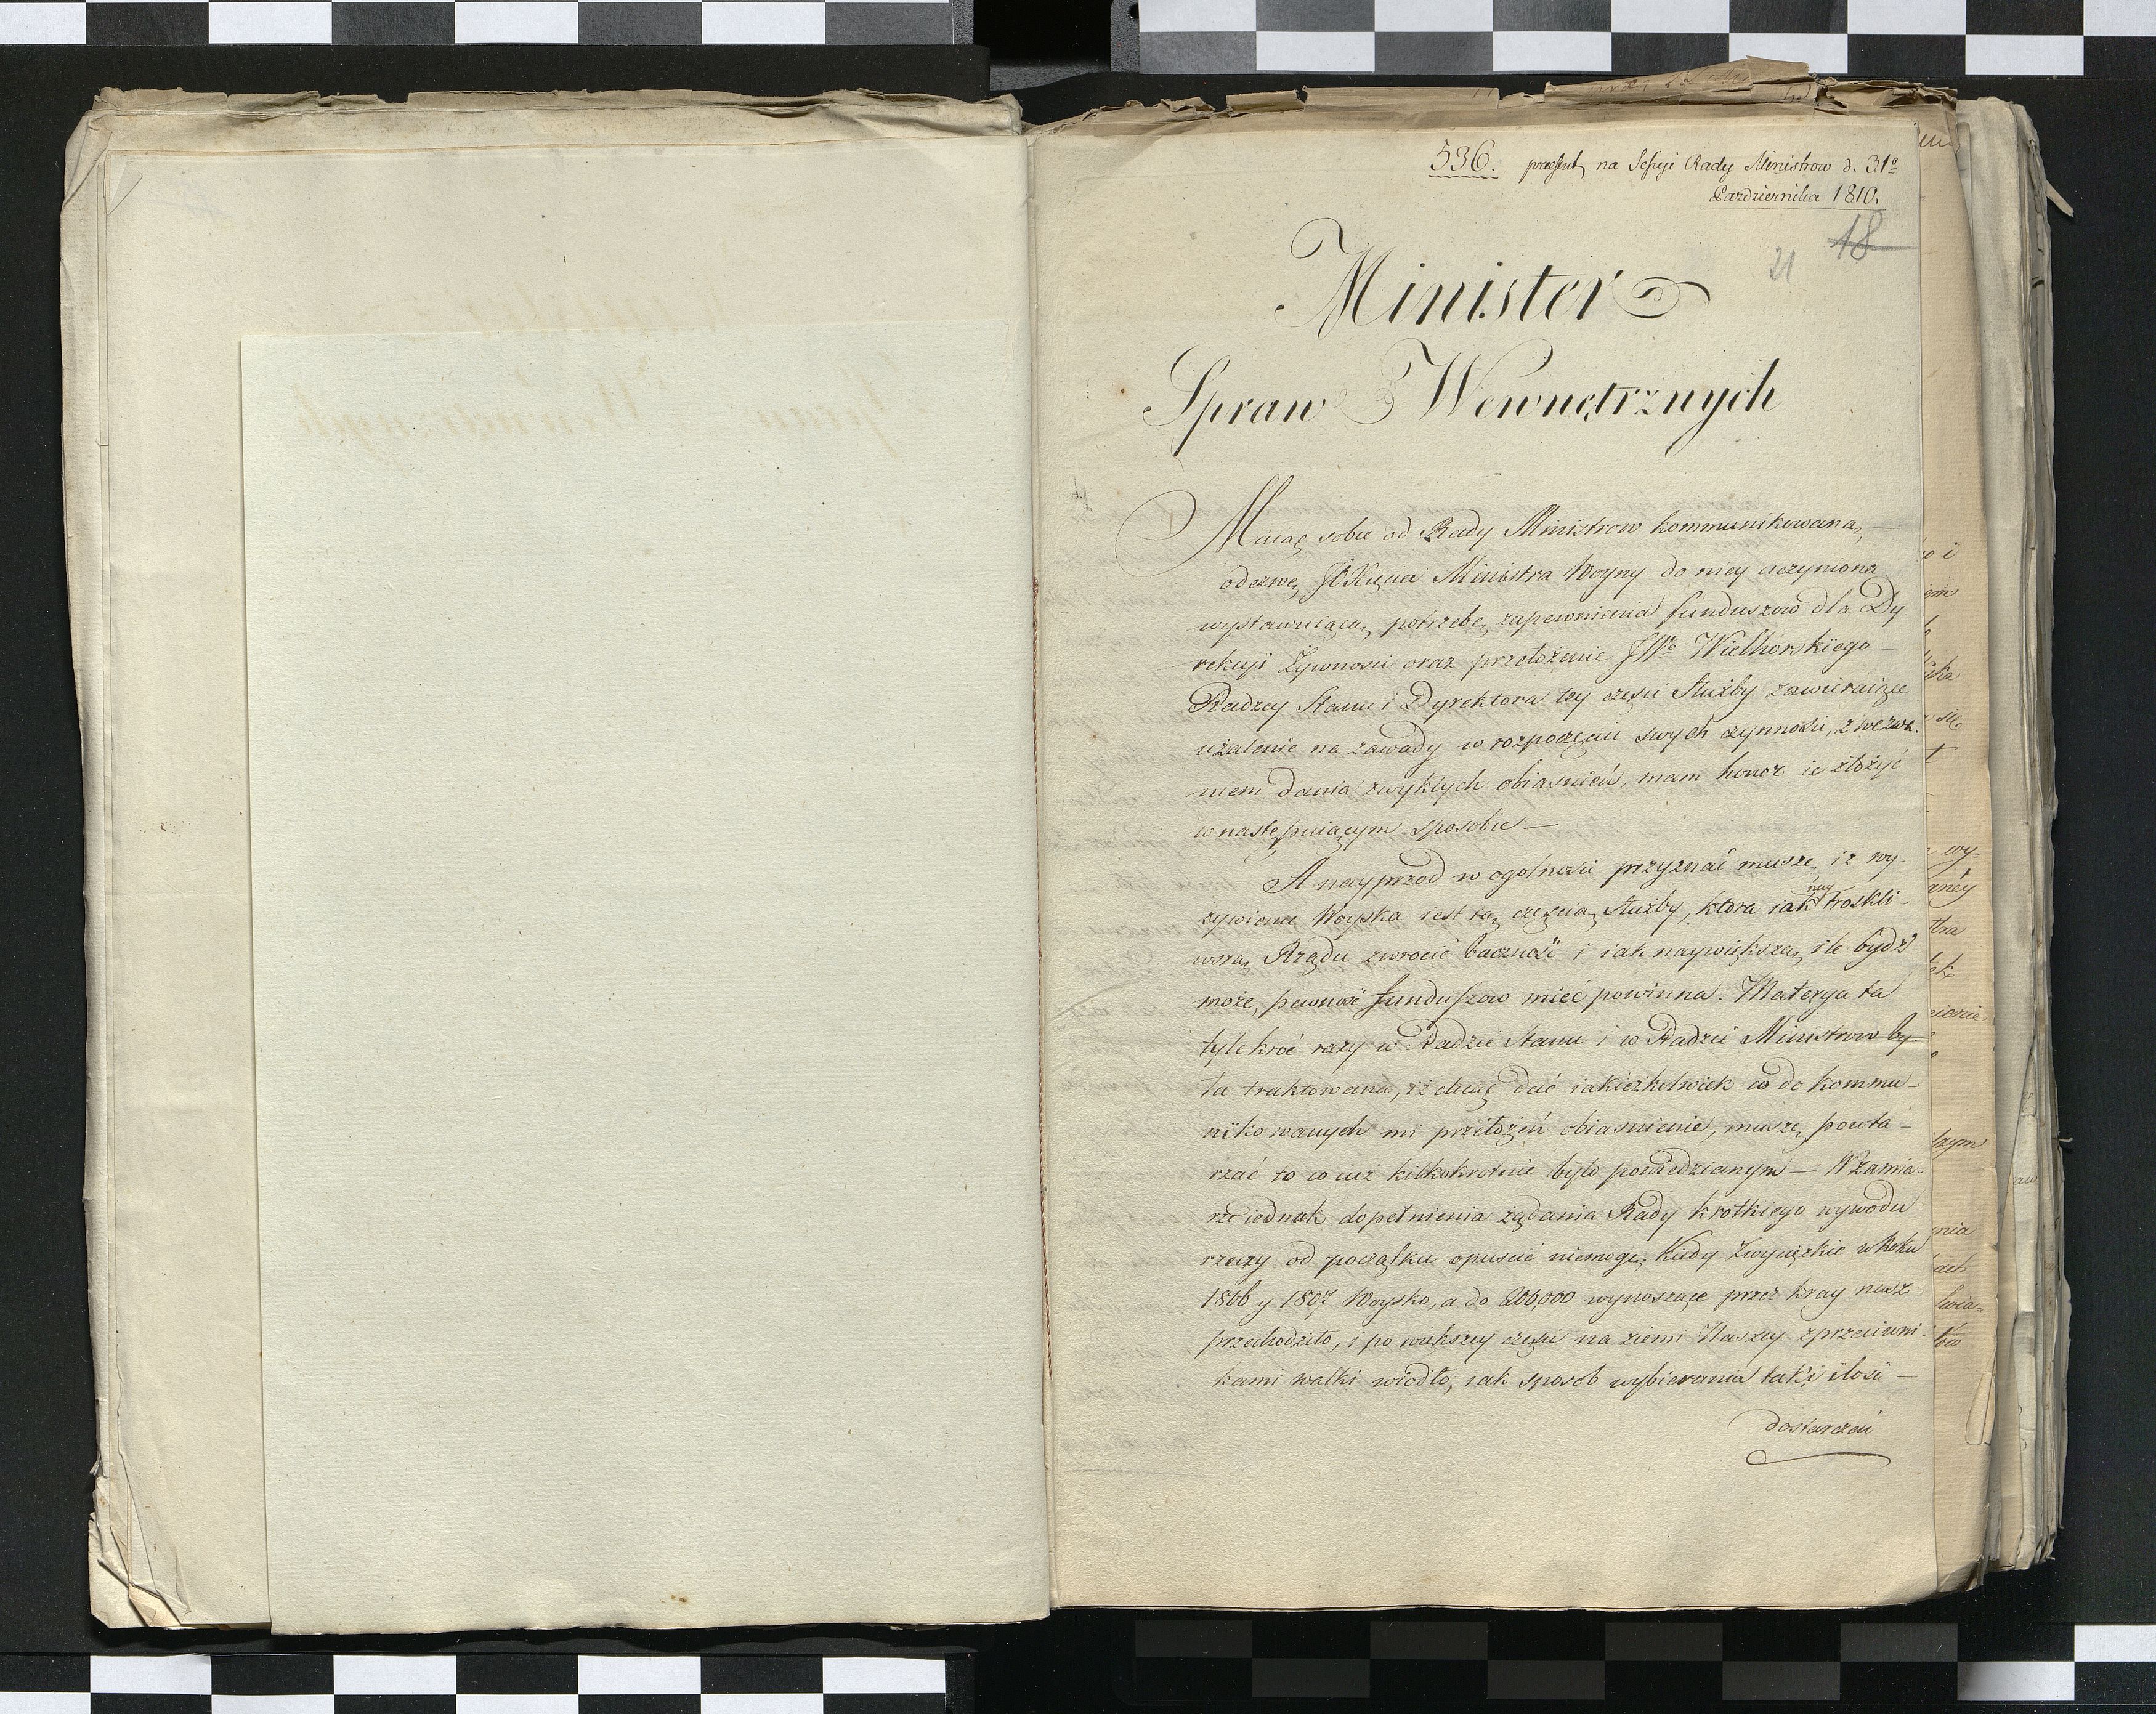 536. praesent, na Sessyi Rady Ministrow d. 31o
Pazdziernika 1810.
18
21
Minister
Spraw Wewnętrznych
Maiąc sobie od Rady Ministrow kommunikowaną, —
odezwę JO Xięcia Ministra Woyny do niey uczynioną
wystawuiącą potrzebę zapewnienia funduszow dla Dy
rekcyi Żywnosci oraz przełożenie JWo Wielhorskiego —
Radzcy Stanu i Dyrektora tey części Służby zawieraiące
użalenie na zawady w rozpoczęciu swych czynności, z wezwa-
niem dania zwykłych obiasnień, mam honor ie złożyć
w następuiącym sposobie —
A nayprzod w ogolnosci przyznać muszę, iż wy-
żywienie Woyska iest tą częscią Służby, ktora iak nay troskli-
wszą Rządu zwrocić baczność i iak naywiększą, ile bydź
może, pewność funduszow mieć powinna. Materya ta
tyle kroć razy w Radzie Stanu i w Radzie Ministrow by-
ła traktowana, iż chcąc dać iakieżkolwiek co do kommu-
nikowanych mi przełożeń obiasnienie, muszę, powta-
rzać to co iuż kilkokrotnie było powiedzianym — W zamia-
rze iednak dopełnienia żądania Rady krotkiego wywodu
rzeczy od początku opuscić niemogę. Kiedy Zwycięzkie w Roku
1806 y 1807 Woysko, a do 200,000 wynoszące przez kray nasz
przechodziło, i po większey części na ziemi Naszey z przeciwni-
kami walki wiodło, iak sposob wybierania takiey ilosci —
dostarczeń